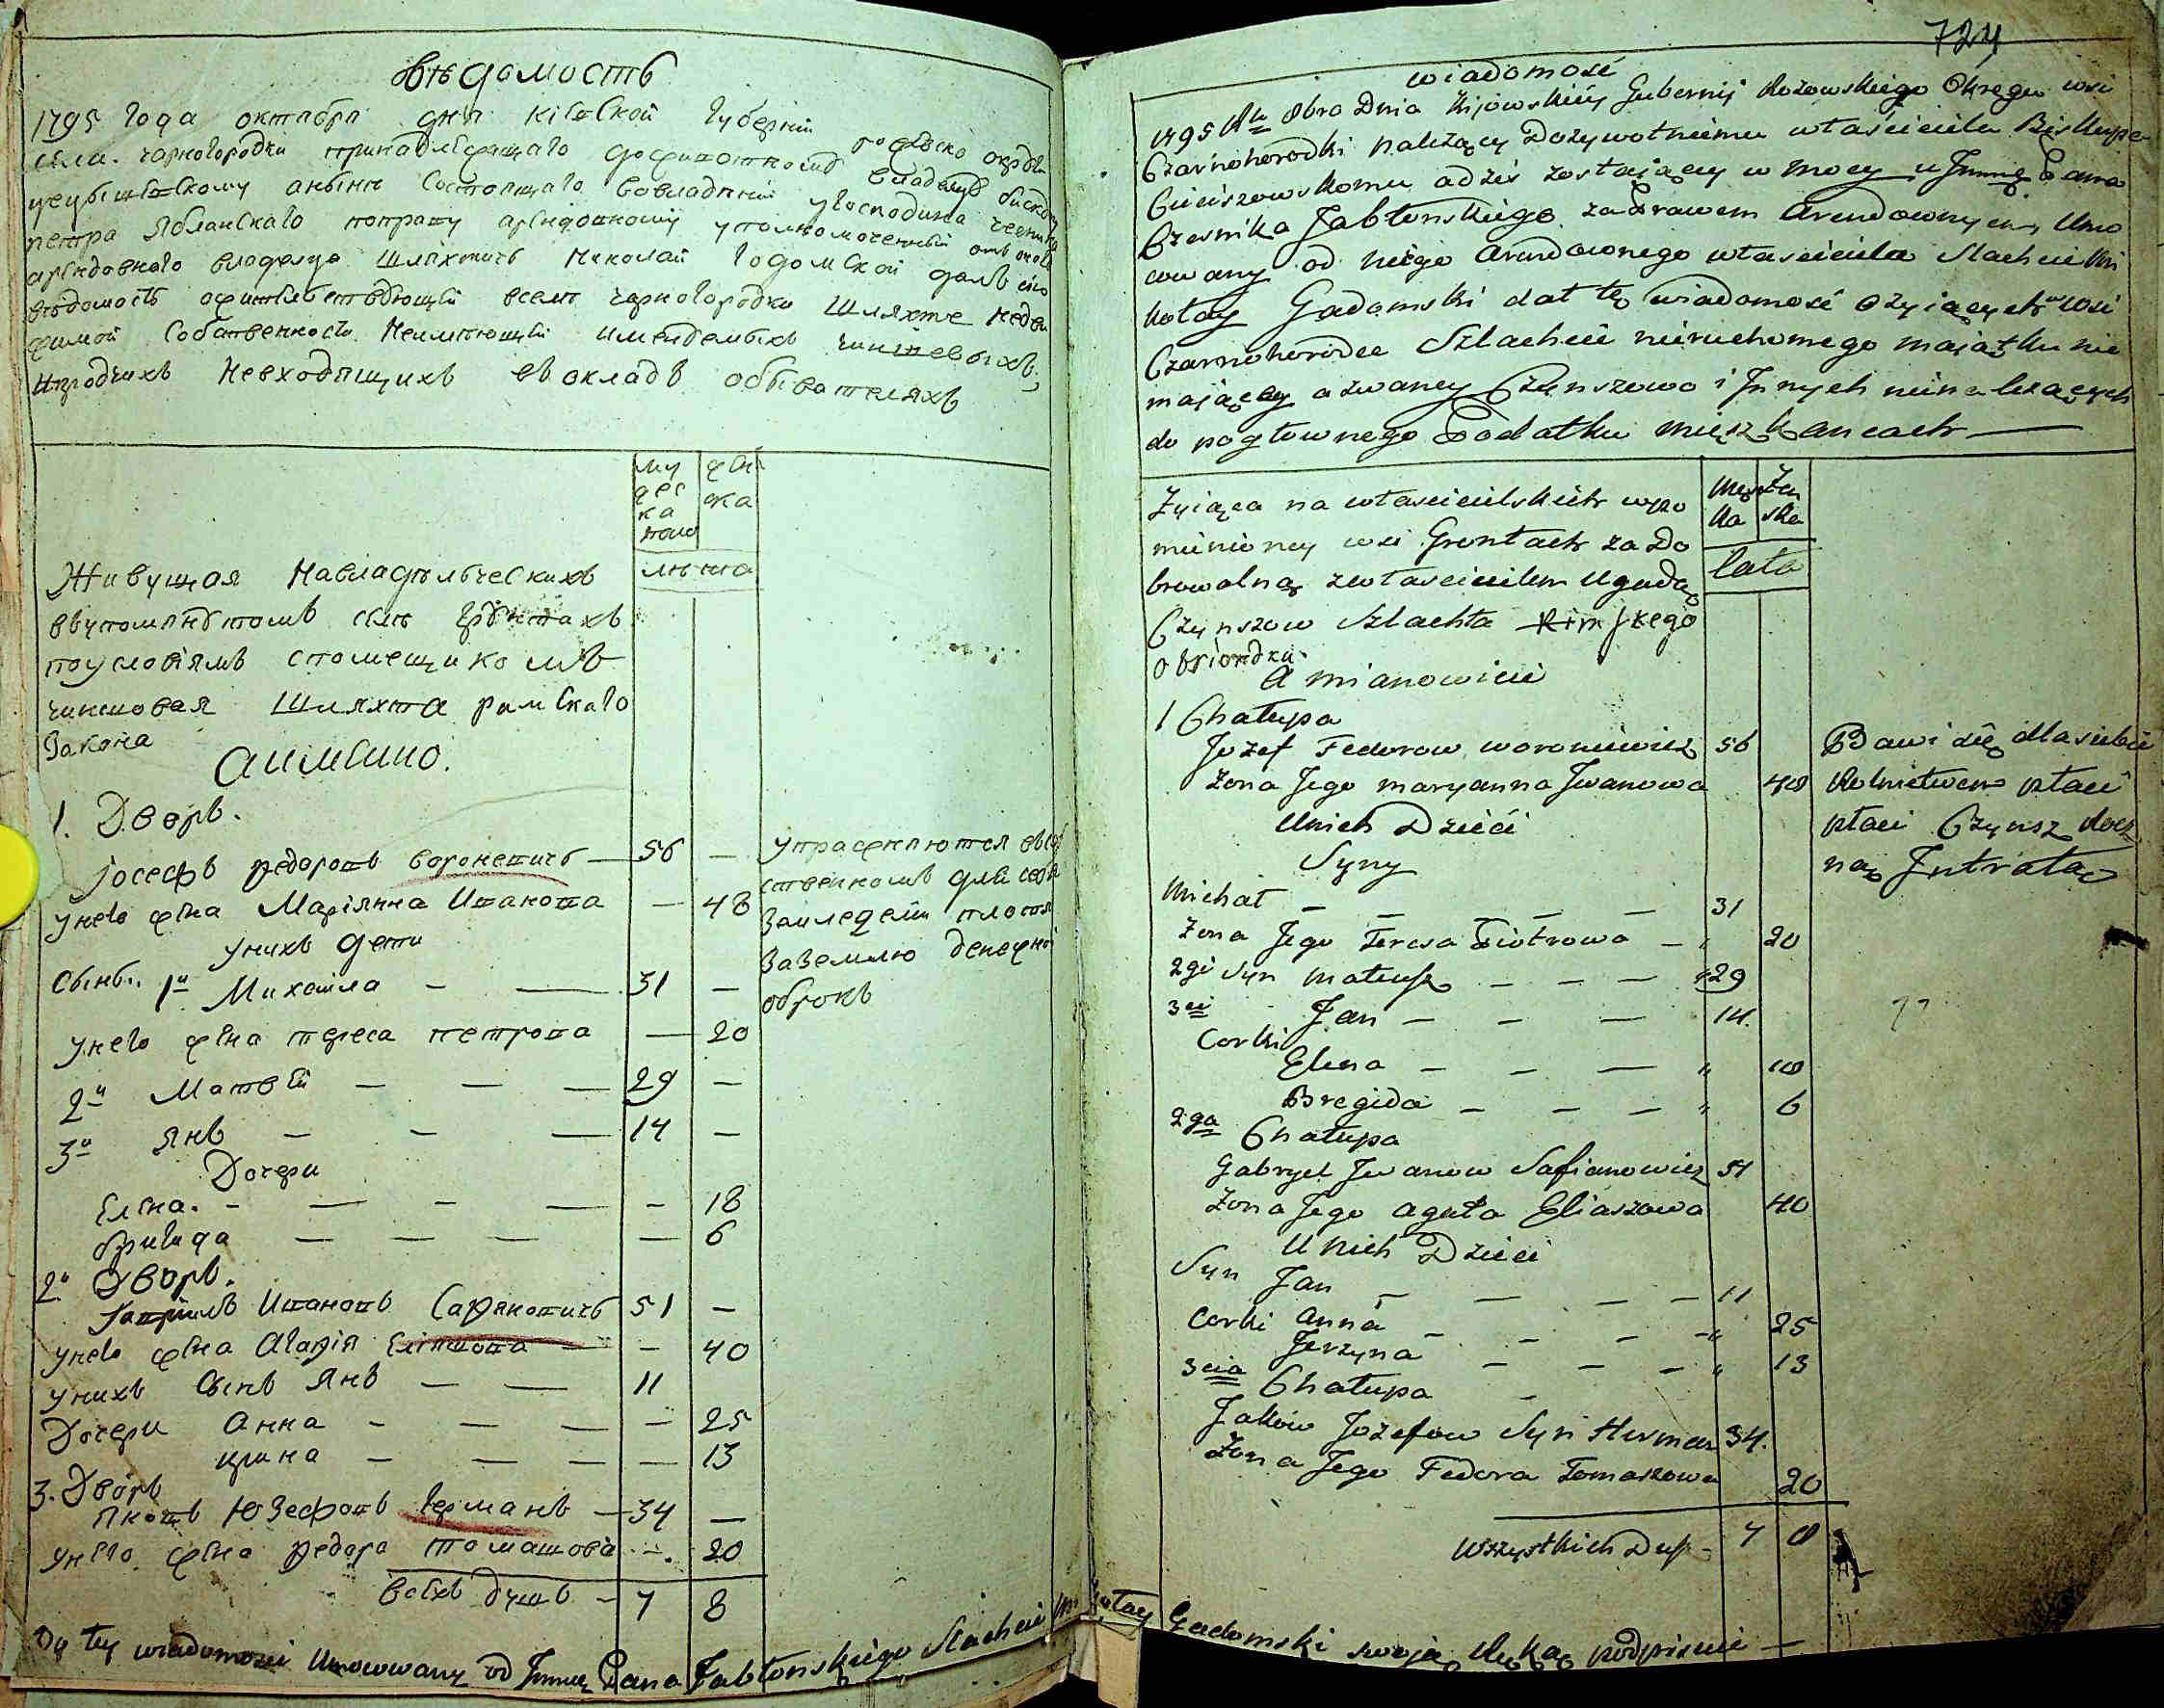 Вѣдомость
1795 года октября дня Кіевской губерніи
села Чарногородки принадлежащаго
цецышевскому анынѣ состоящаго вовладѣніи
петра Яблонскаго поправу арендовному
арендовного владельца шляхтичъ Николай Годомской далъ сію
вѣдомость ожителствующей всемъ чарногородки шляхте недви
жимой собственности неимеющей именуемыхъ чиншевыхъ
ипрочихъ невходящихъ въ окладъ обывателяхъ
му
жес
ка
жен
ска
лѣта
Живущая навладѣльческихъ
ввупомянутомъ селѣ грунтахъ
поусловіямъ спомещикомъ
чиншовая шляхта римскаго
закона
аимянно.
1. Дворъ.
Іосефъ Федоровъ Вороневичъ — 56 —
унего жена Маріянна Иванова — 48
унихъ дети
Сынъ 1й Михайла — — 31 —
унего жена тереса петрова — 20
2й Матвей — — — 29 —
3й Янъ — — — 14 —
Дочери
Елена. — — — — — 18
бригида — — — — — 6
2й Дворъ.
Гаврилъ Ивановъ Сафяновичъ 51 —
унего жена Агафія Еліяшова — — 40
унихъ Сынъ Янъ — — 11
Дочери Анна — — — — 25
ирина — — — — 13
3. Дворъ
Яковъ Юзефовъ Германъ — 34 —
унего жена Федора томашова — 20
всехъ душъ — 7 8
упражняются
ственномъ для себя
заземлю денежной
оброкъ
Do tey wiadomosci Umocowany od Jmmc Pana Jabłonskiego Slachcic Mikołay Gadomski swoją Ręką podpisuie —
724
wiadomosć
1795 Ru 8bra Dnia Kijowskiey Gubernij Rożowskiego Okręgu wsi
Czarnohorodki należący Dożywotniemu właścicielu Biskupo
Cieciszowskomu adziś zostaiący w mocy u Jmmc Pana
Czesnika Jabłonskiego za Prawem Arendownym, Umo
cowany od niego Arendownego własciciela Slachcic Mi
kołay Gadomski dał tę wiadomosć ożyiących w wsi
Czarnohorodce Szlachcie nieruchomego maiątku nie
maiącey azwaney Czynszowo i Jnnych nienależących
do pogłownego Podatku mieszkancach —
Żyiąca na własciecielskich wspo
mnioney wsi Gruntach za Do
browolną zwłascicielem Ugodą
Czynszow Szlachta Rimskego
obriondku.
A mianowicie
Męs
ka
Żen
ska
lata
1 Chałupa
Jozef Fedorow woroniewicz 56
Żona Jego maryanna Jwanowa 48
Unich Dzieci
Syny
Michał — — — — 31
Żona Jego Teresa Piotrowa — " 20
2gi Syn Mateusz — — — 29
3ci Jan — — — 14.
Corki
Elena — — — " 18
Bregida — — — " 6
2ga Chałupa
Gabryel Jwanow Safianowicz 51
Żona Jego Agata Eliaszowa 40
U nich Dzieci
Syn Jan — — — — 11
Corki Anna — — — — " 25
Jerzyna — — — " 13
3cia Chałupa —
Jakow Jozefow Syn Herman 34.
Żona Jego Fedora Tomaszowa 20
Wszystkich Dusz — 7 8
Bawi się dla siebie
Rolnictwem płaci
płaci Czynsz Rocz
ną Jntratą